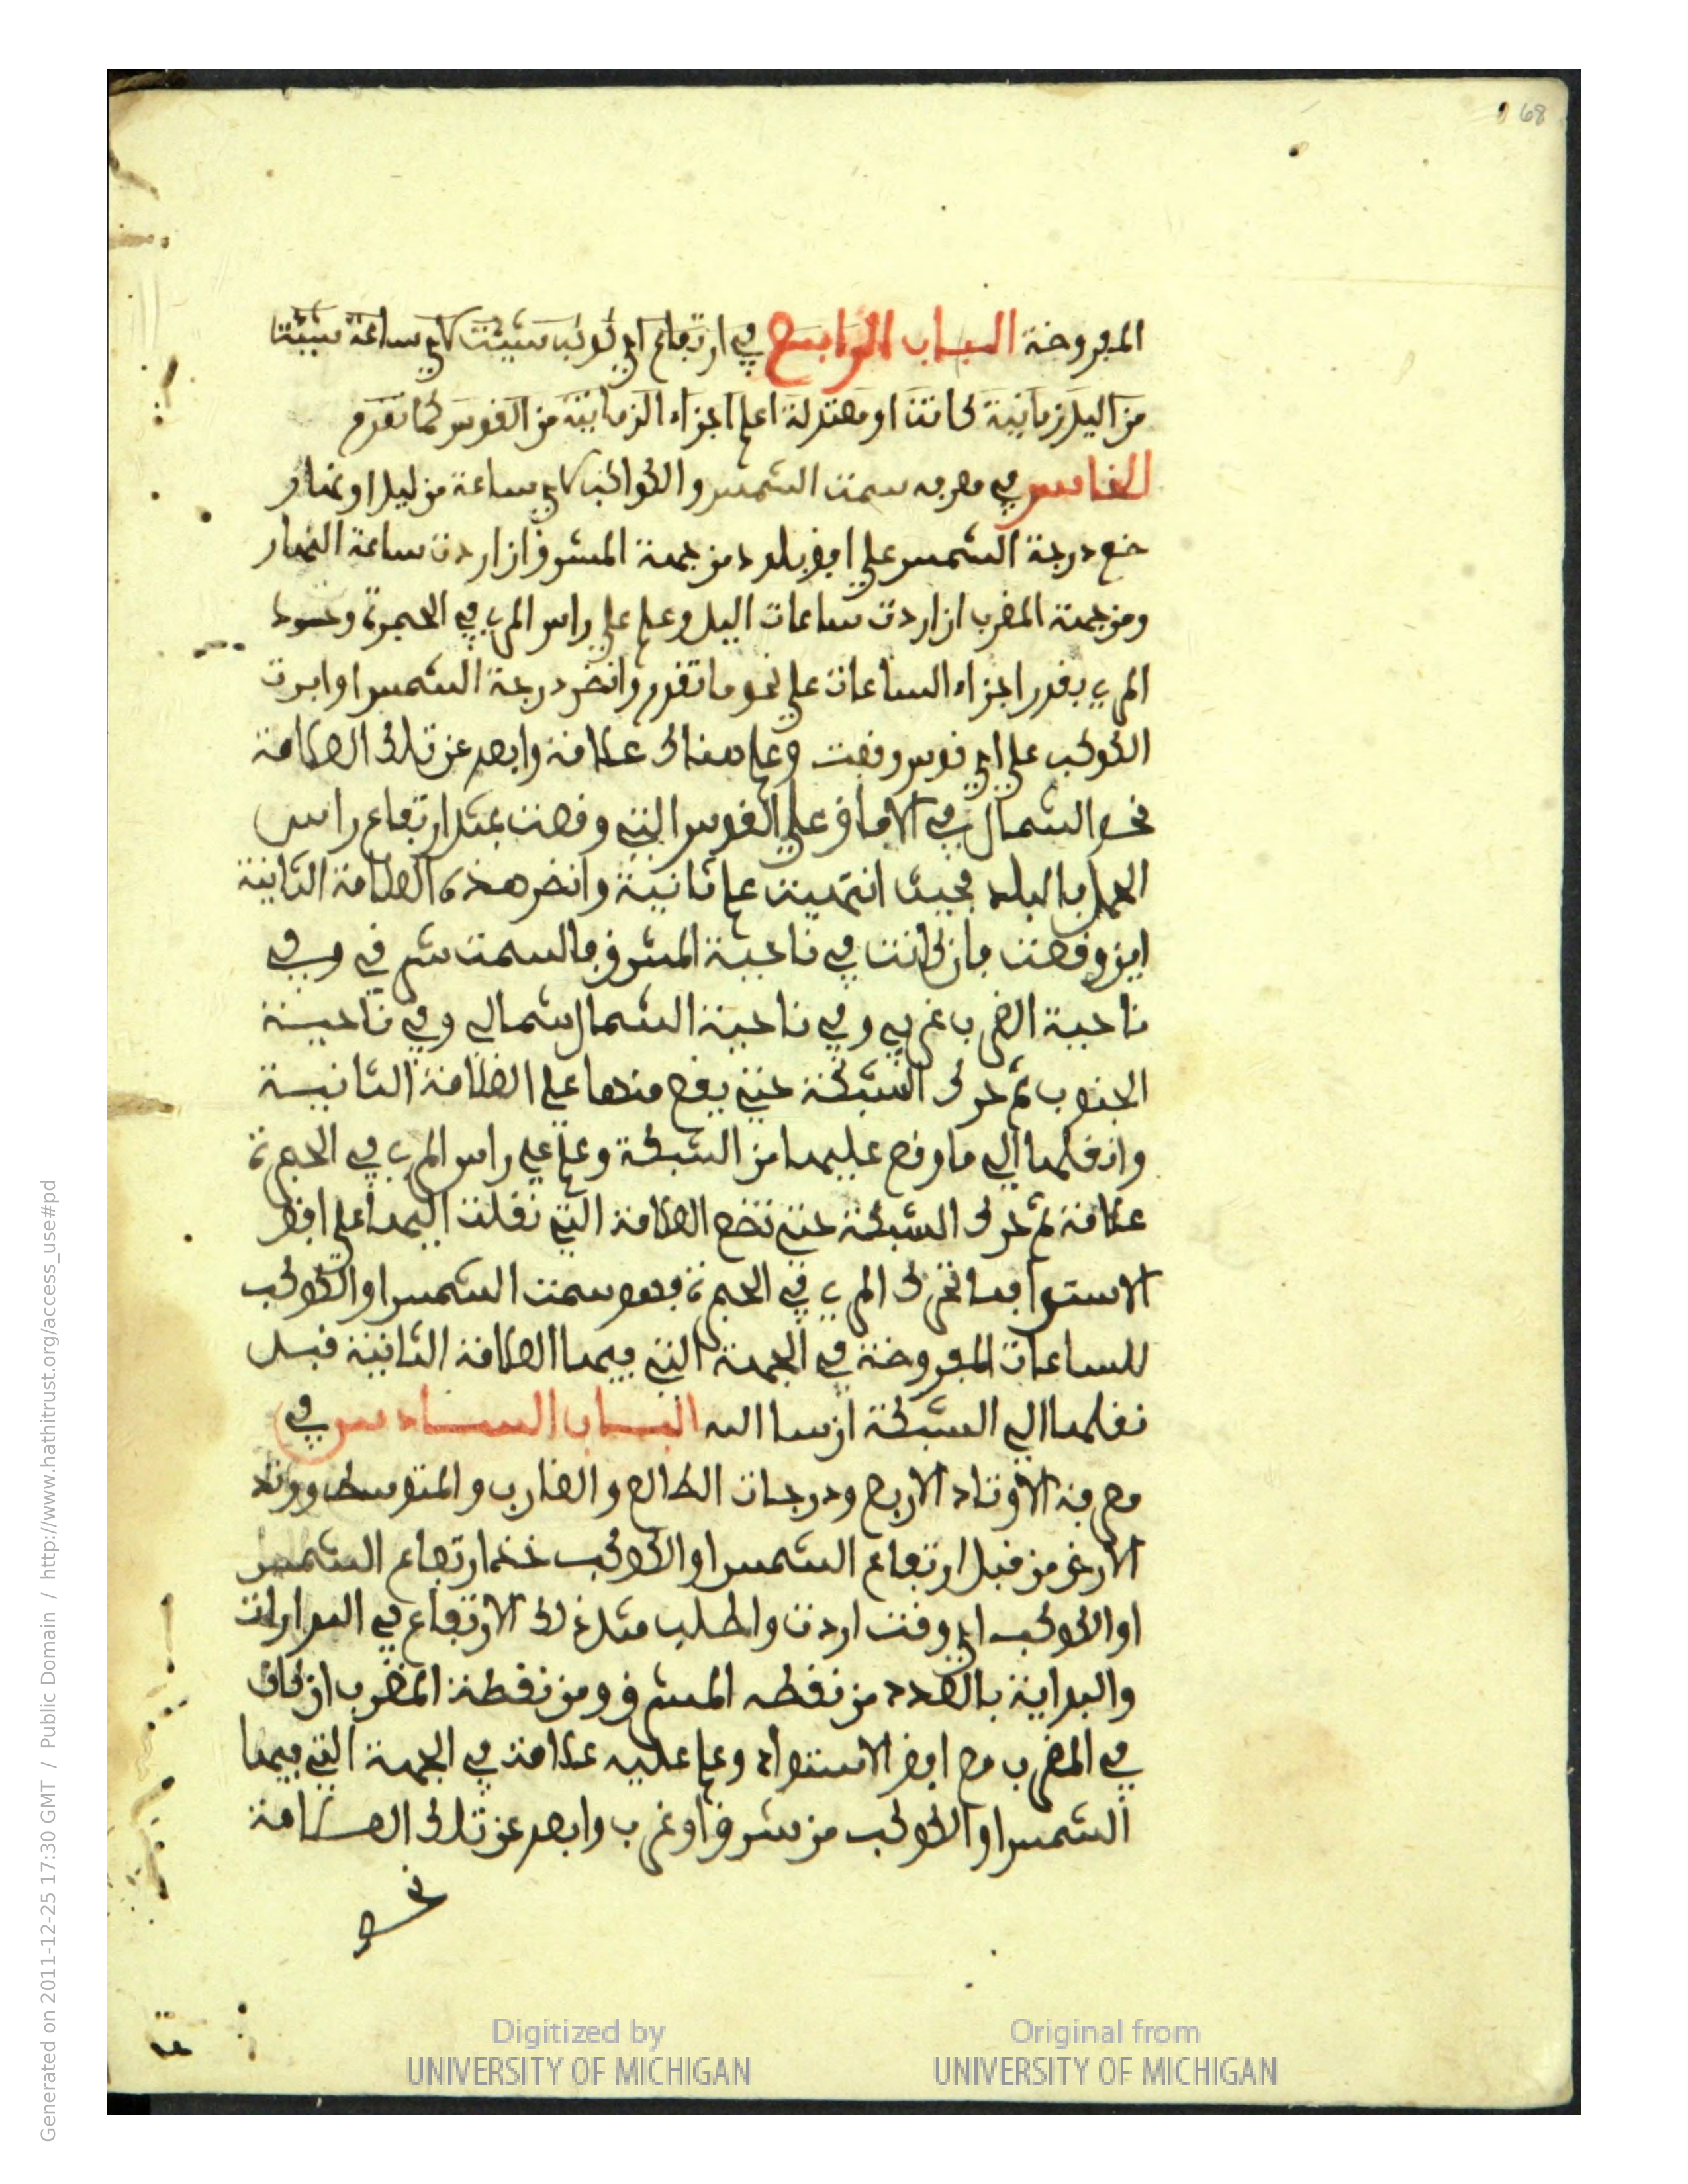 68
المفروضة الباب الرابع في ارتفاع اي كوكب شيئت لاي ساعة شيئتا
من اليل زمانية كانت او معتدلة اعلم اجزاء الزمانية من القوس كما تقدم
الخامس في معرفه سمت الشمس والكواكب لاي ساعة من ليل او نهار
ضع درجة الشمس على افق بلدك من جهة المشرق ان اردت ساعة النهار
ومن جهة المغرب ان اردت ساعات اليل وعلم على راس المري في الحجرة
المري بقدر اجزاء الساعات على نحو ما تقدم وانضر درجة الشمس او
الكوكب على اي قوس وقعت وعلم هنالك علامة وابعد عن تلك العلامة
نحو الشمال في الافاق على القوس التي وقعت بمثل ارتفاع راس
الحمل بالبلد فحيث انتهيت علم ثانية وانضر هذه العلامة الثانية
اين وقعت فان كانت في ناحية المشرق فالسمت شرقي وفي
ناحية الغرب غربي وفي ناحية الشمال شمالي وفي ناحية
الجنوب ثم حرك الشبكة حتى يقع منها على العلامة الثانية
وانقلها الى ما وقع عليها من الشبكة وعلم على راس المري في الحجرة
علامة ثم حرك الشبكة حتى تضع العلامة التي نقلت اليها على افق
الاستوا فما تحرك المري في الحجرة فهو سمت الشمس او الكوكب
للساعات المفروضة في الجهة التي فيها العلامة الثانية قبل
نقلها الى الشبكة ان شا الله الباب السادس في
معرفة الاوتاد الاربع ودرجات الطالع والغارب والمتوسط ووتد
الارض من قبل ارتفاع الشمس او الكوكب خذ ارتفاع الشمس
او الكوكب اي وقت اردت واطلب مثل ذلك الارتفاع في المدارات
والبداية بالعدد من نقطه المشرق ومن نقطة المغرب ان كان
في المغرب مع افق الاستواء وعلم عليه علامة في الجهة التي فيها
الشمس او الكوكب من شرق او غرب وابعد عن تلك العلامة
نحو
Digitized by
UNIVERSITY OF MICHIGAN
Original from
UNIVERSITY OF MICHIGAN
Generated on 2011-12-25 17:30 GMT / Public Domain / http://www.hathitrust.org/access_use#pd